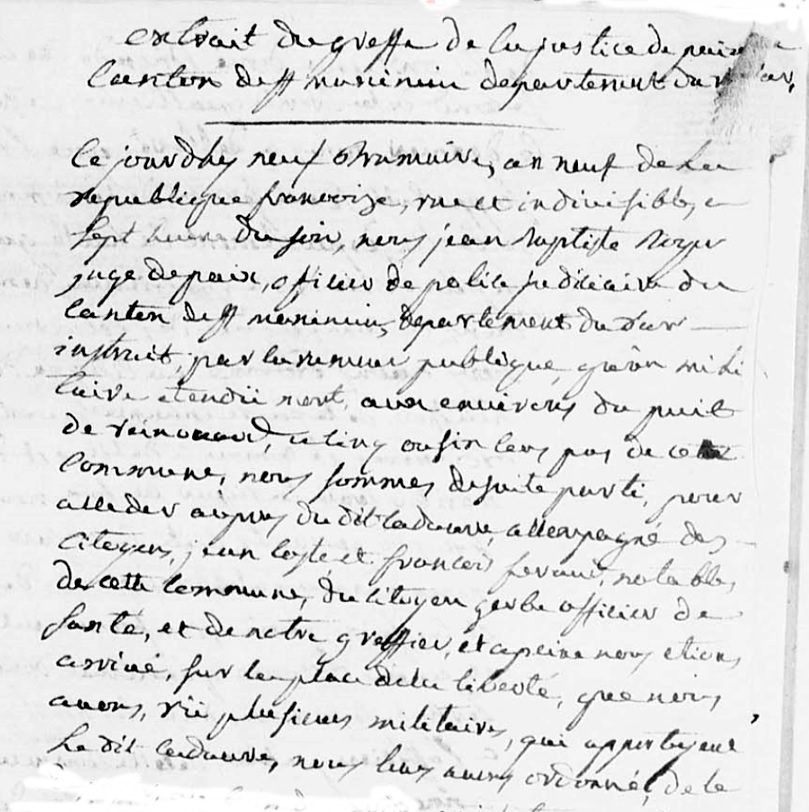 extrait du greffe de la justice de paix
canton de St maximin departement du var,
Ce jourdhuy neuf brumaire, an neuf de la
republique francoise, une et indivisible, a
sept heures du soir, nous jean baptiste Royer
juge de paix, officier de police judiciaire du
canton de St maximin, departement du var
instruit, par la rumeur publique, qu'un mili
taire etendu mort, aux environs du puit
de a cinq ou six cens pas de cette
commune, nous sommes desuite parti, pour
aller auprès du dit cadavre, accompagné des
citoyens, jean coste et francois feraud, notables,
de cette commune, du citoyen gerbe officier de
santé, et de notre greffier, et apeine nous etions
arrivé, sur la place de la liberté, que nous
avons, vu plusieurs militaires, qui apportoient
Le dit cadavre, nous leur avons ordonné, de le